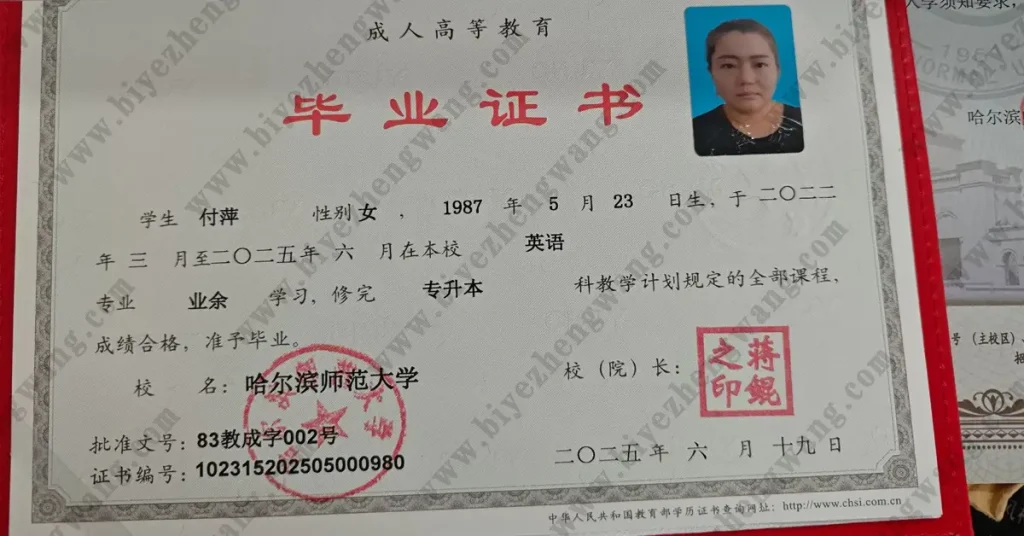 成人高等教育
毕业证书
学生 付萍 性别 女 , 1987 年 5 月 23 日生, 于 二〇二二
年 三 月至二〇二五年 六 月在本校 英语
专业 业余 学习, 修完 专升本 科教学计划规定的全部课程,
成绩合格, 准予毕业。
校 名: 哈尔滨师范大学
校（院）长: 蒋鲲之印
批准文号: 83教成字002号
证书编号: 102315202505000980
二〇二五年 六 月 十九 日
中华人民共和国教育部学历证书查询网址: http://www.chsi.com.cn
www.biyezhengwang.com
入学须知要求,
哈尔滨
号 (主校区)